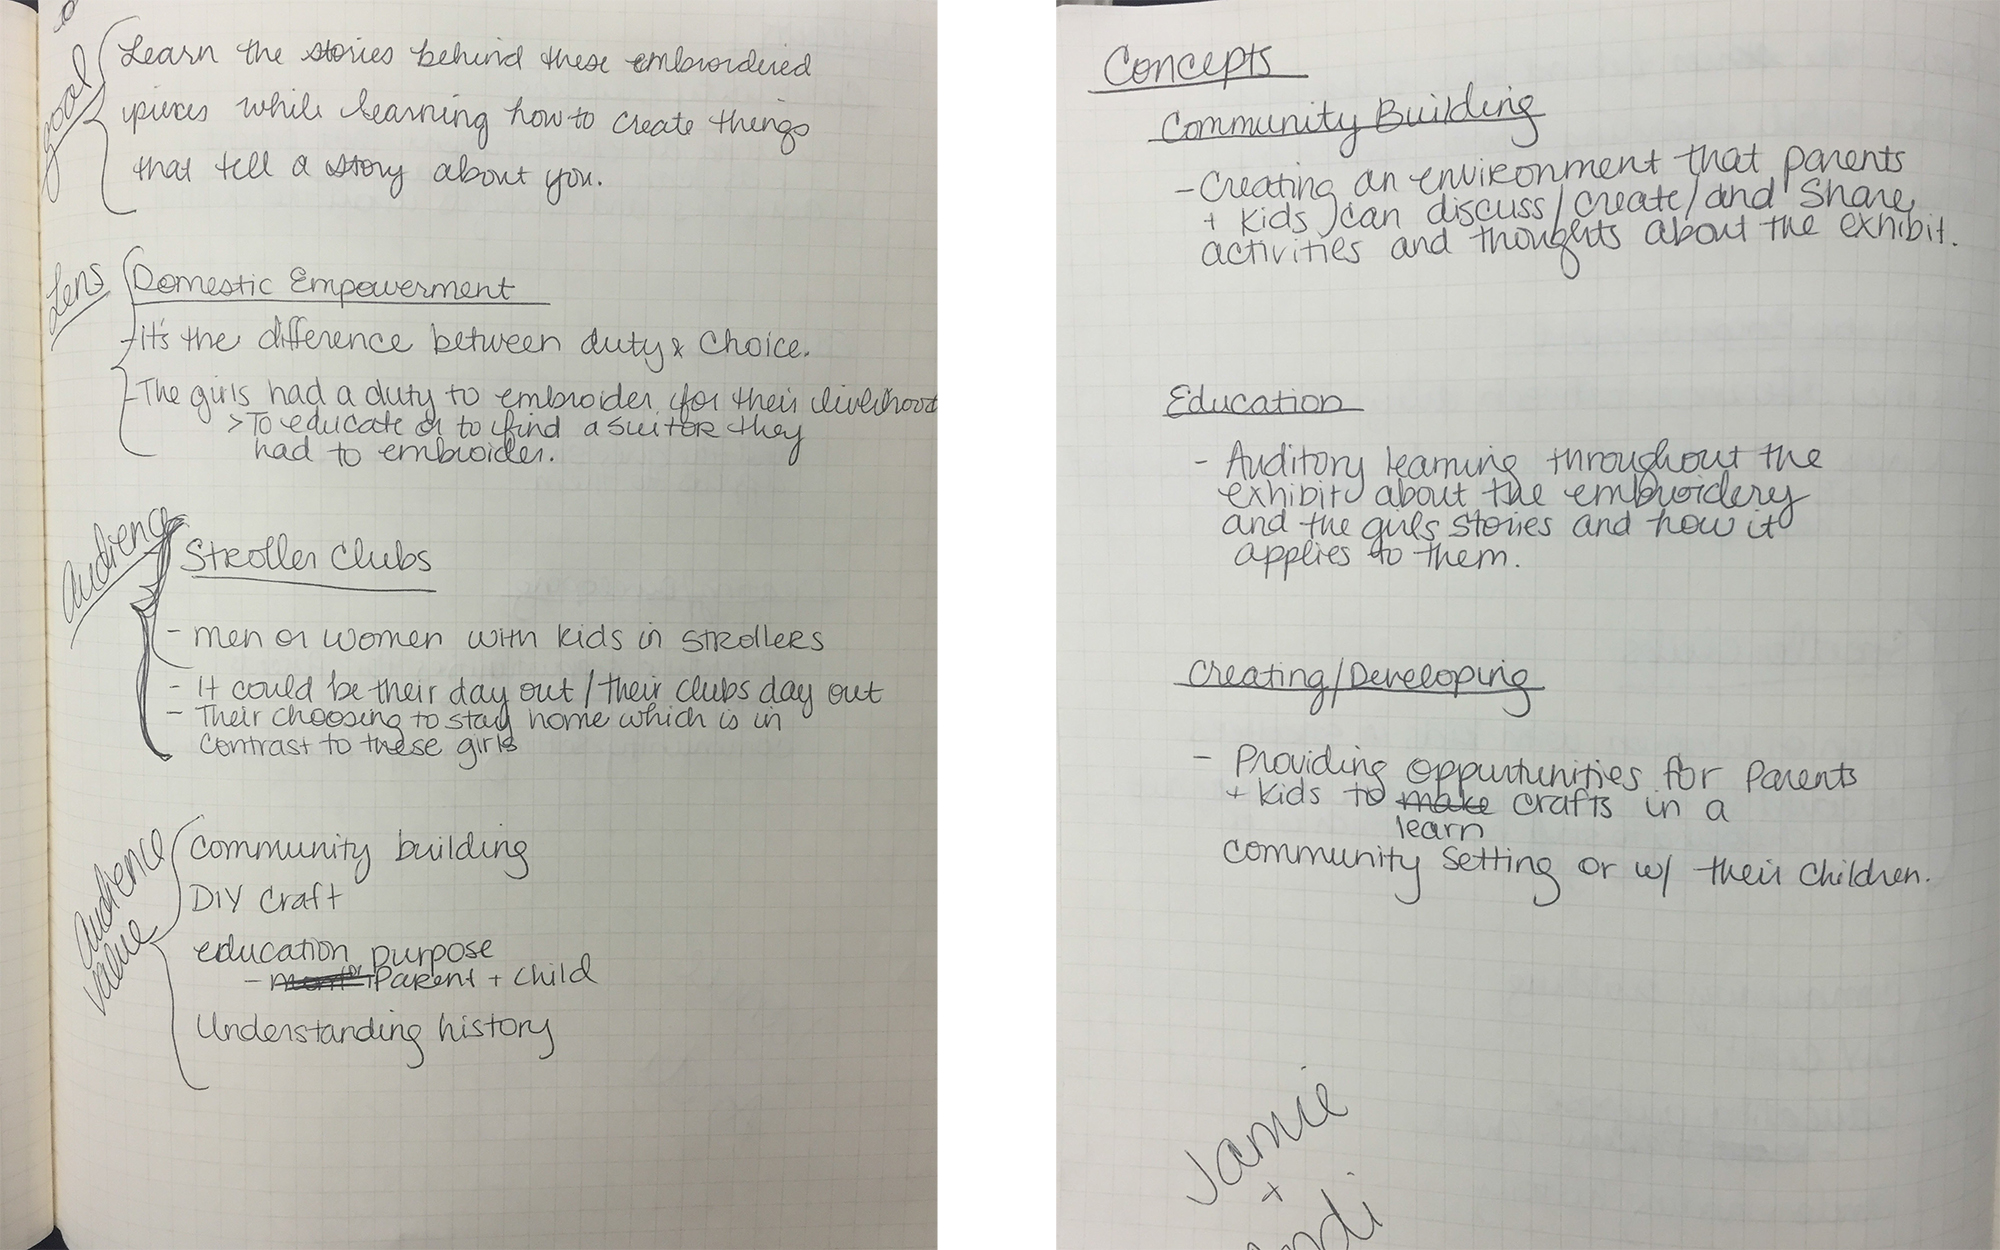 goal
Learn the stories behind these embroidered
pieces while learning how to create things
that tell a story about you.
Lens
Domestic Empowerment
- It's the difference between duty & choice.
- The girls had a duty to embroider for their livelihood
> To educate or to find a suitor they
had to embroider.
Audience
Stroller Clubs
- men or women with kids in strollers
- It could be their day out / their clubs day out
- Their choosing to stay home which is in
contrast to these girls
audience
value
Community building
DIY Craft
education purpose
- for Parent + child
Understanding history
Concepts
Community Building
- Creating an environment that parents
+ kids can discuss/create/and share
activities and thoughts about the exhibit.
Education
- Auditory learning throughout the
exhibit about the embroidery
and the girls stories and how it
applies to them.
Creating/Developing
- Providing oppurtunities for parents
+ kids to make crafts in a
learn
community setting or w/ their children.
Jamie
+